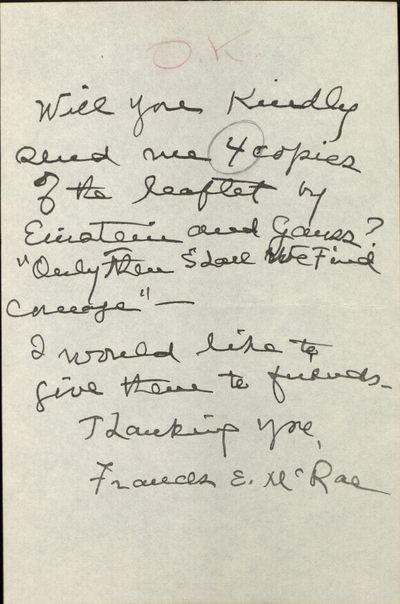 O.K.
Will you Kindly
send me 4 copies
of the leaflet by
Einstein and Gauss?
"Only Then Shall We Find
Courage" —
I would like to
give them to friends—
Thanking you,
Frances E. McRae